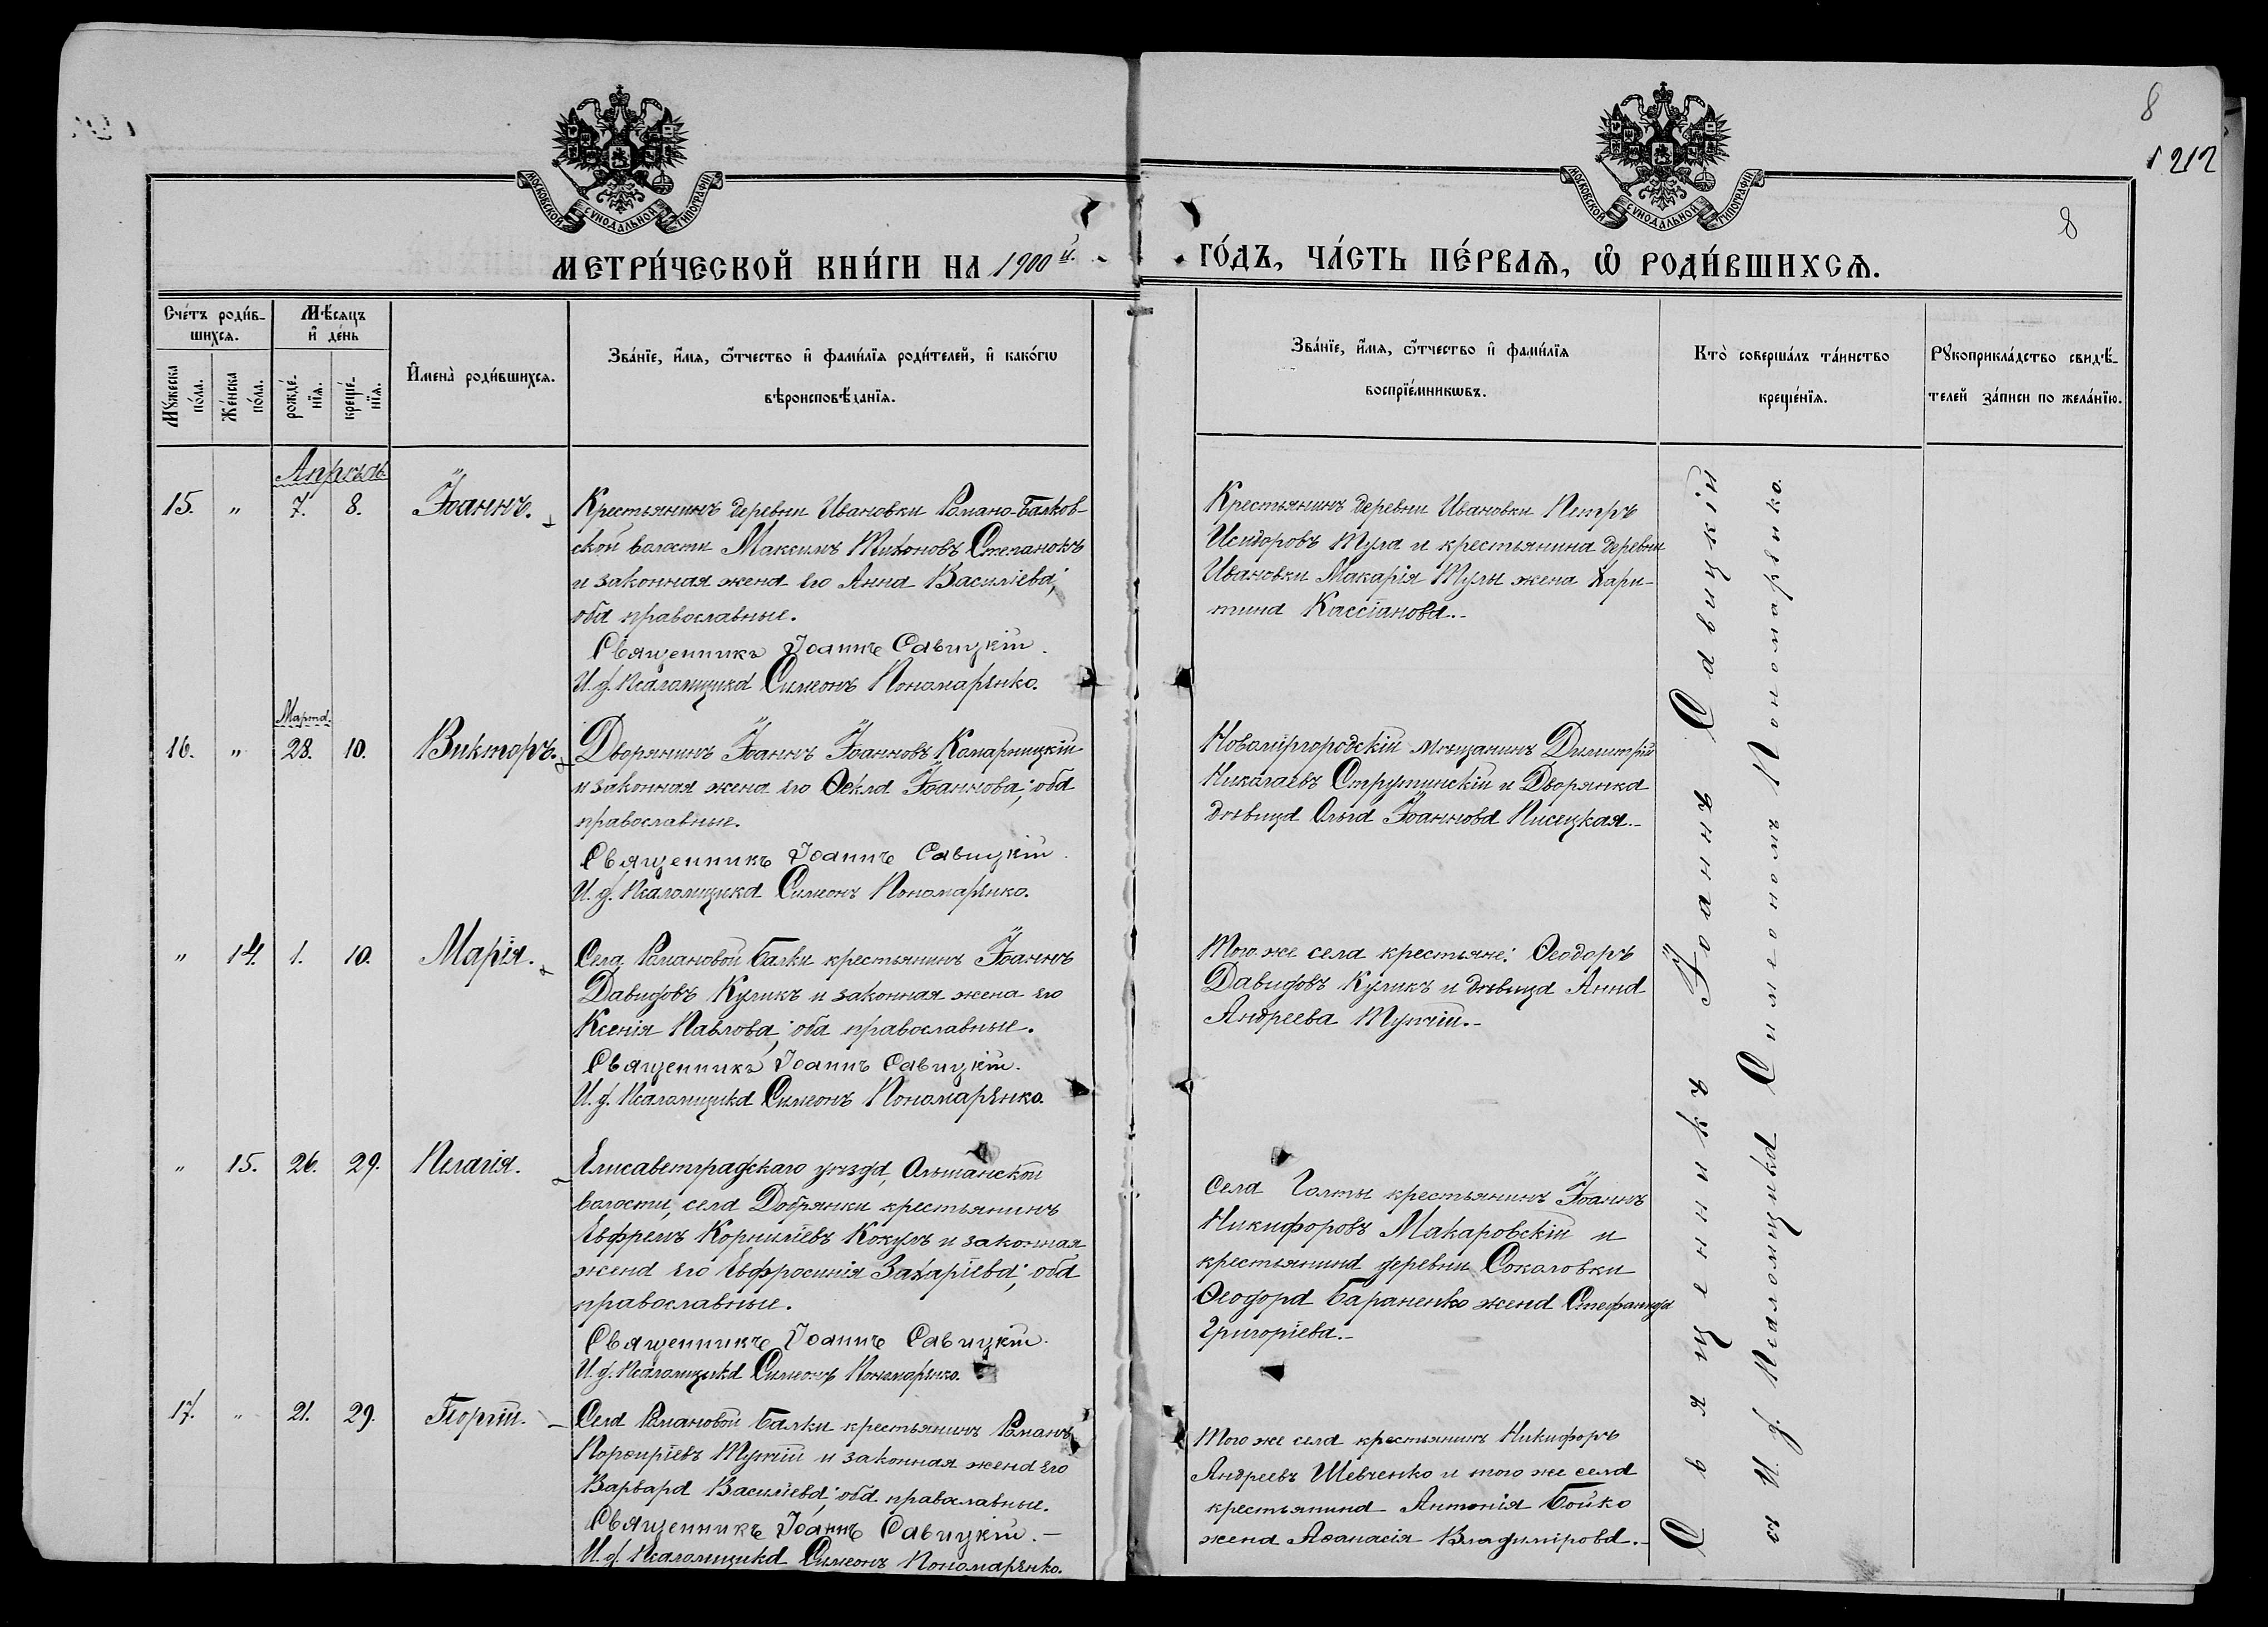 МОСКОВСКОЙ СУНОДАЛЬНОЙ ТИПОГРАФІИ
МОСКОВСКОЙ СУНОДАЛЬНОЙ ТИПОГРАФІИ
8
1212
8
МЕТРИ́ЧЕСКОЙ КНИ́ГИ НА 1900й.
ГО́ДЪ, ЧА́СТЬ ПЕ́РВАѦ, Ѡ РОДИ́ВШИХСѦ.
Сче́тъ роди́в-
шихсѧ.
Мѣ́сѧцъ
и де́нь
Мꙋ́жеска
по́ла.
Же́нска
по́ла.
рожде́-
нїѧ.
креще́-
нїѧ.
Имена̀ роди́вшихсѧ.
Зва́нїе, и́мѧ, ѻ́тчество и фами́лїѧ роди́телей, и како́гѡ
вѣроисповѣ́данїѧ.
Зва́нїе, и́мѧ, ѻ́тчество и фами́лїѧ
воспрїе́мникѡвъ.
Кто̀ соверша́лъ та́инство
креще́нїѧ.
Рꙋкоприкла́дство свидѣ́-
телей за́писи по жела́нїю.
Апрѣль
15. " 7. 8. Іоаннъ.
Крестьянинъ деревни Ивановки Романо-Балков-
ской волости Максимъ Тихоновъ Степанокъ
и законная жена его Анна Василіева;
оба православные.
Священникъ Іоаннъ Савицкій.
И. д. Псаломщика Симеонъ Пономаренко.
Крестьянинъ деревни Ивановки Петръ
Исидоровъ Тула и крестьянина деревни
Ивановки Макарія Тулы жена Хари-
тина Кассіанова.-
Марта.
16. " 28. 10. Викторъ.
Дворянинъ Іоаннъ Іоанновъ Комарницкій
и законная жена его Ѳекла Іоаннова; оба
православные.
Священникъ Іоаннъ Савицкій.
И. д. Псаломщика Симеонъ Пономаренко.
Новомиргородскій мѣщанинъ Димитрій
Николаевъ Струтинскій и Дворянка
дѣвица Ольга Іоаннова Писецкая.-
" 14. 1. 10. Марія.
Села Романовой Балки крестьянинъ Іоаннъ
Давидовъ Куликъ и законная жена его
Ксенія Павлова; оба православные.
Священникъ Іоаннъ Савицкій.
И. д. Псаломщика Симеонъ Пономаренко.
Того же села крестьяне: Ѳеодоръ
Давидовъ Куликъ и дѣвица Анна
Андреева Тупчій.-
" 15. 26. 29. Пелагія.
Елисаветградскаго уѣзда, Ольшанской
волости, села Добрянки крестьянинъ
Евфремъ Корниліевъ Кокулъ и законная
жена его Евфросинія Захаріева; оба
православные.
Священникъ Іоаннъ Савицкій.
И. д. Псаломщика Симеонъ Пономаренко.
Села Голты крестьянинъ Іоаннъ
Никифоровъ Макаровскій и
крестьянина деревни Соколовки
Ѳеодора Бараненко жена Стефанида
Григоріева.-
17. " 21. 29. Георгій.
Села Романовой Балки крестьянинъ Романъ
Порфиріевъ Тупчій и законная жена его
Варвара Василіева; оба православные.
Священникъ Іоаннъ Савицкій.-
И. д. Псаломщика Симеонъ Пономаренко.
Того же села крестьянинъ Никифоръ
Андреевъ Шевченко и того же села
крестьянина Антонія Бойко
жена Аѳанасія Владимірова.-
Священникъ Іоаннъ Савицкій
съ И. д. Псаломщика Симеономъ Пономаренко.